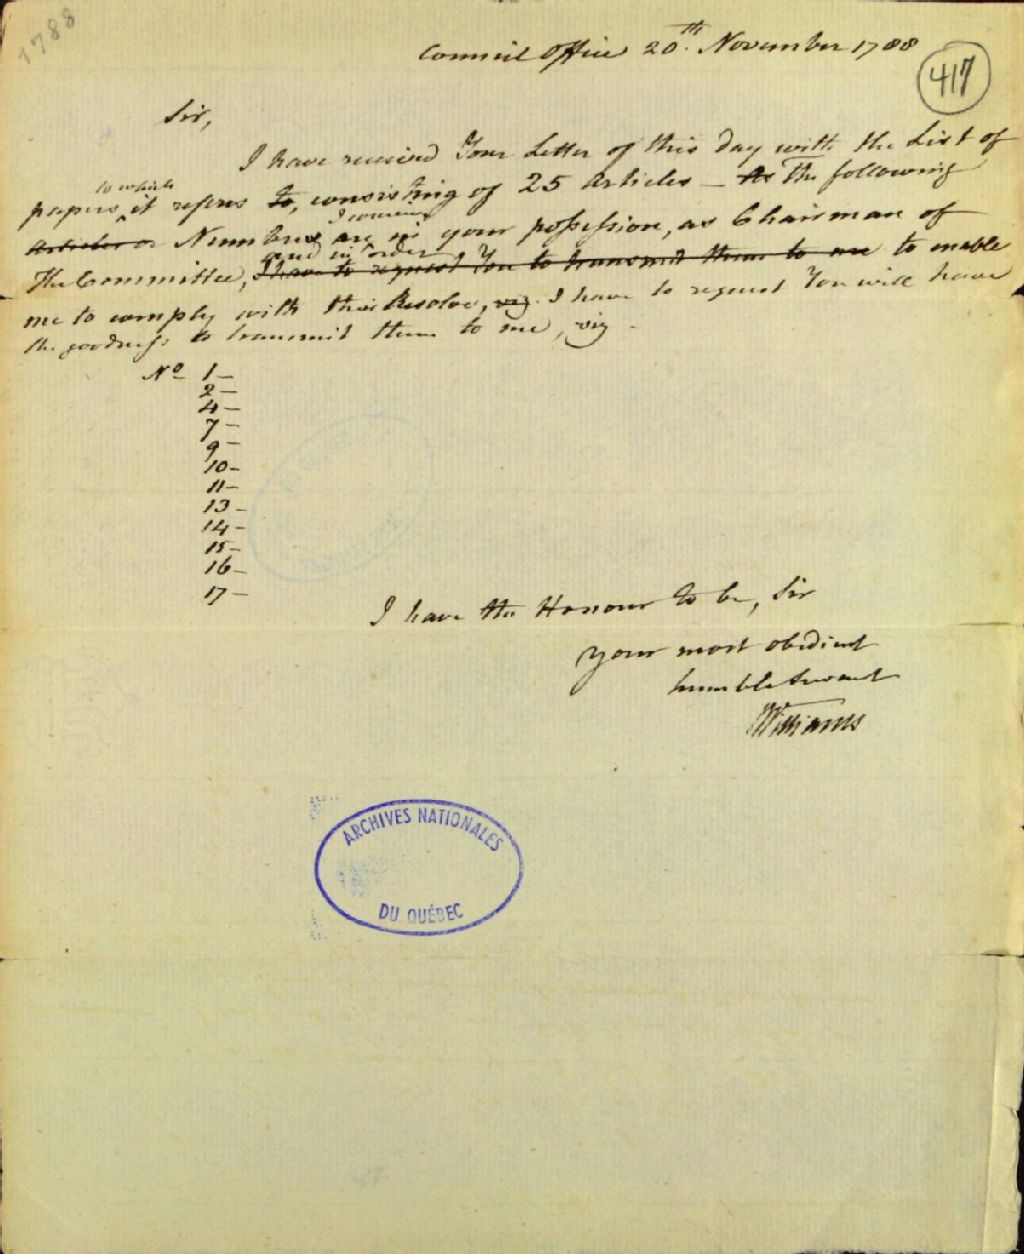 1788
Council Office 20.th November 1788
417
Sir,
I have received Your Letter of this Day with the List of
to which
papers, it refers to, consisting of 25 Articles – As The following
I conceive
Articles or Numbers are in your possession, as Chairman of
and in order
The Committee, I have to request You to transmit them to me to enable
me to comply with this Resolve, viz. I have to request You will have
the goodness to transmit them to me, viz
No 1 –
2 –
4 –
7 –
9 –
10 –
11 –
13 –
14 –
15 –
16 –
17 –
I have the Honour to be, Sir
Your most obedient
humble Servant
JWilliams
ARCHIVES NATIONALES
DU QUÉBEC